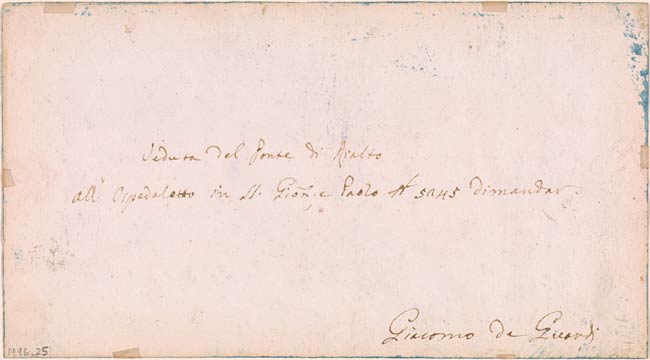 Veduta del Ponte di Rialto
all' Ospedaletto in SS. Gioñ, e Paolo N° 5245 dimandar
Giacomo de Guardi
1996.25